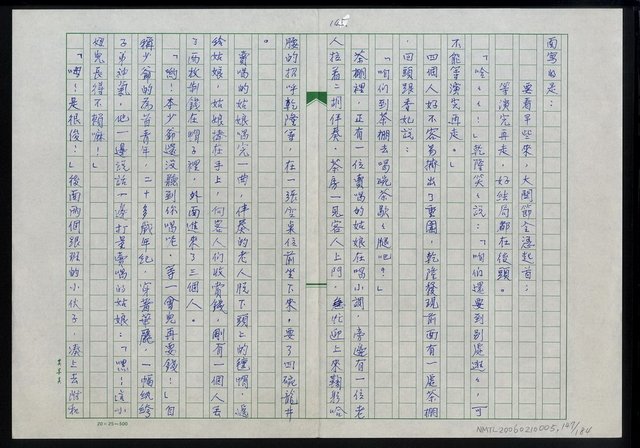 145.
面寫的是：
要看早些來，大關節全憑起首；
等演完再走，好結局都在後頭。
「哈～～！」乾隆笑～說：「咱們還要到別處逛～，可
不能等演完再走。」
四個人好不容易擠出了重圍，乾隆發現前面有一處茶棚
，回頭跟香妃說：
「咱們到茶棚去喝碗茶歇～腿吧？」
茶棚裡，正有一位賣唱的姑娘在唱小調，旁邊有一位老
人拉著二胡伴奏。茶房一見客人上門，忙迎上來鞠躬哈
腰的招呼乾隆等，在一張空桌位前坐下來。要了四碗龍井
。
賣唱的姑娘唱完一曲，伴奏的老人脫下頭上的氈帽，遞
給姑娘，姑娘捧在手上，向客人們收賞錢，剛有一個人丟
了兩枚制錢在帽子裡，外面進來了三個人。
「喲！李少爺還沒聽到你唱哩，等一會兒再要錢！」自
稱少爺的為首青年，二十多歲年紀，穿著華麗，一幅紈絝
子弟神氣，他一邊說話一邊打量賣唱的姑娘：「嘿！這小
妞兒長得不賴嘛！」
「唷！是很俊！」後面兩個跟班的小伙子，湊上去附和
20×25=500
NMTL20060210005, 147/184